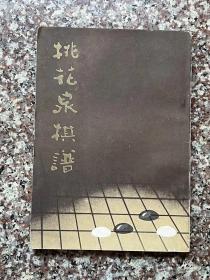 桃花泉棋譜